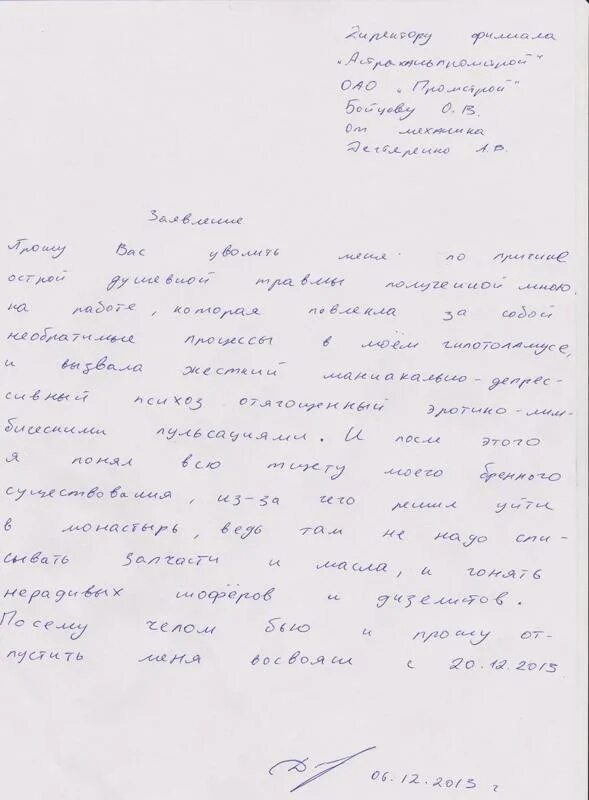 Директору филиала
„Астраханьпромстрой"
ОАО „Промстрой"
Бойцову О.В.
От механика
Дегтяренко А.В.
Заявление
Прошу Вас уволить меня по притине
острой душевной травмы полученной мною
на работе, которая повлекла за собой
необратимые процессы в моём гипотоламусе,
и вызвала жесткий маниакально-депрес-
сивный психоз отягощенный эротико-лим-
бическими пульсациями. И после этого
я понял всю тщету моего бренного
существования, из-за чего решил уйти
в монастырь, ведь там не надо спи-
сывать запчасти и масла, и гонять
нерадивых шофёров и дизелистов.
Посему челом бью и прошу от-
пустить меня восвояси с 20.12.2013
06.12.2013 г